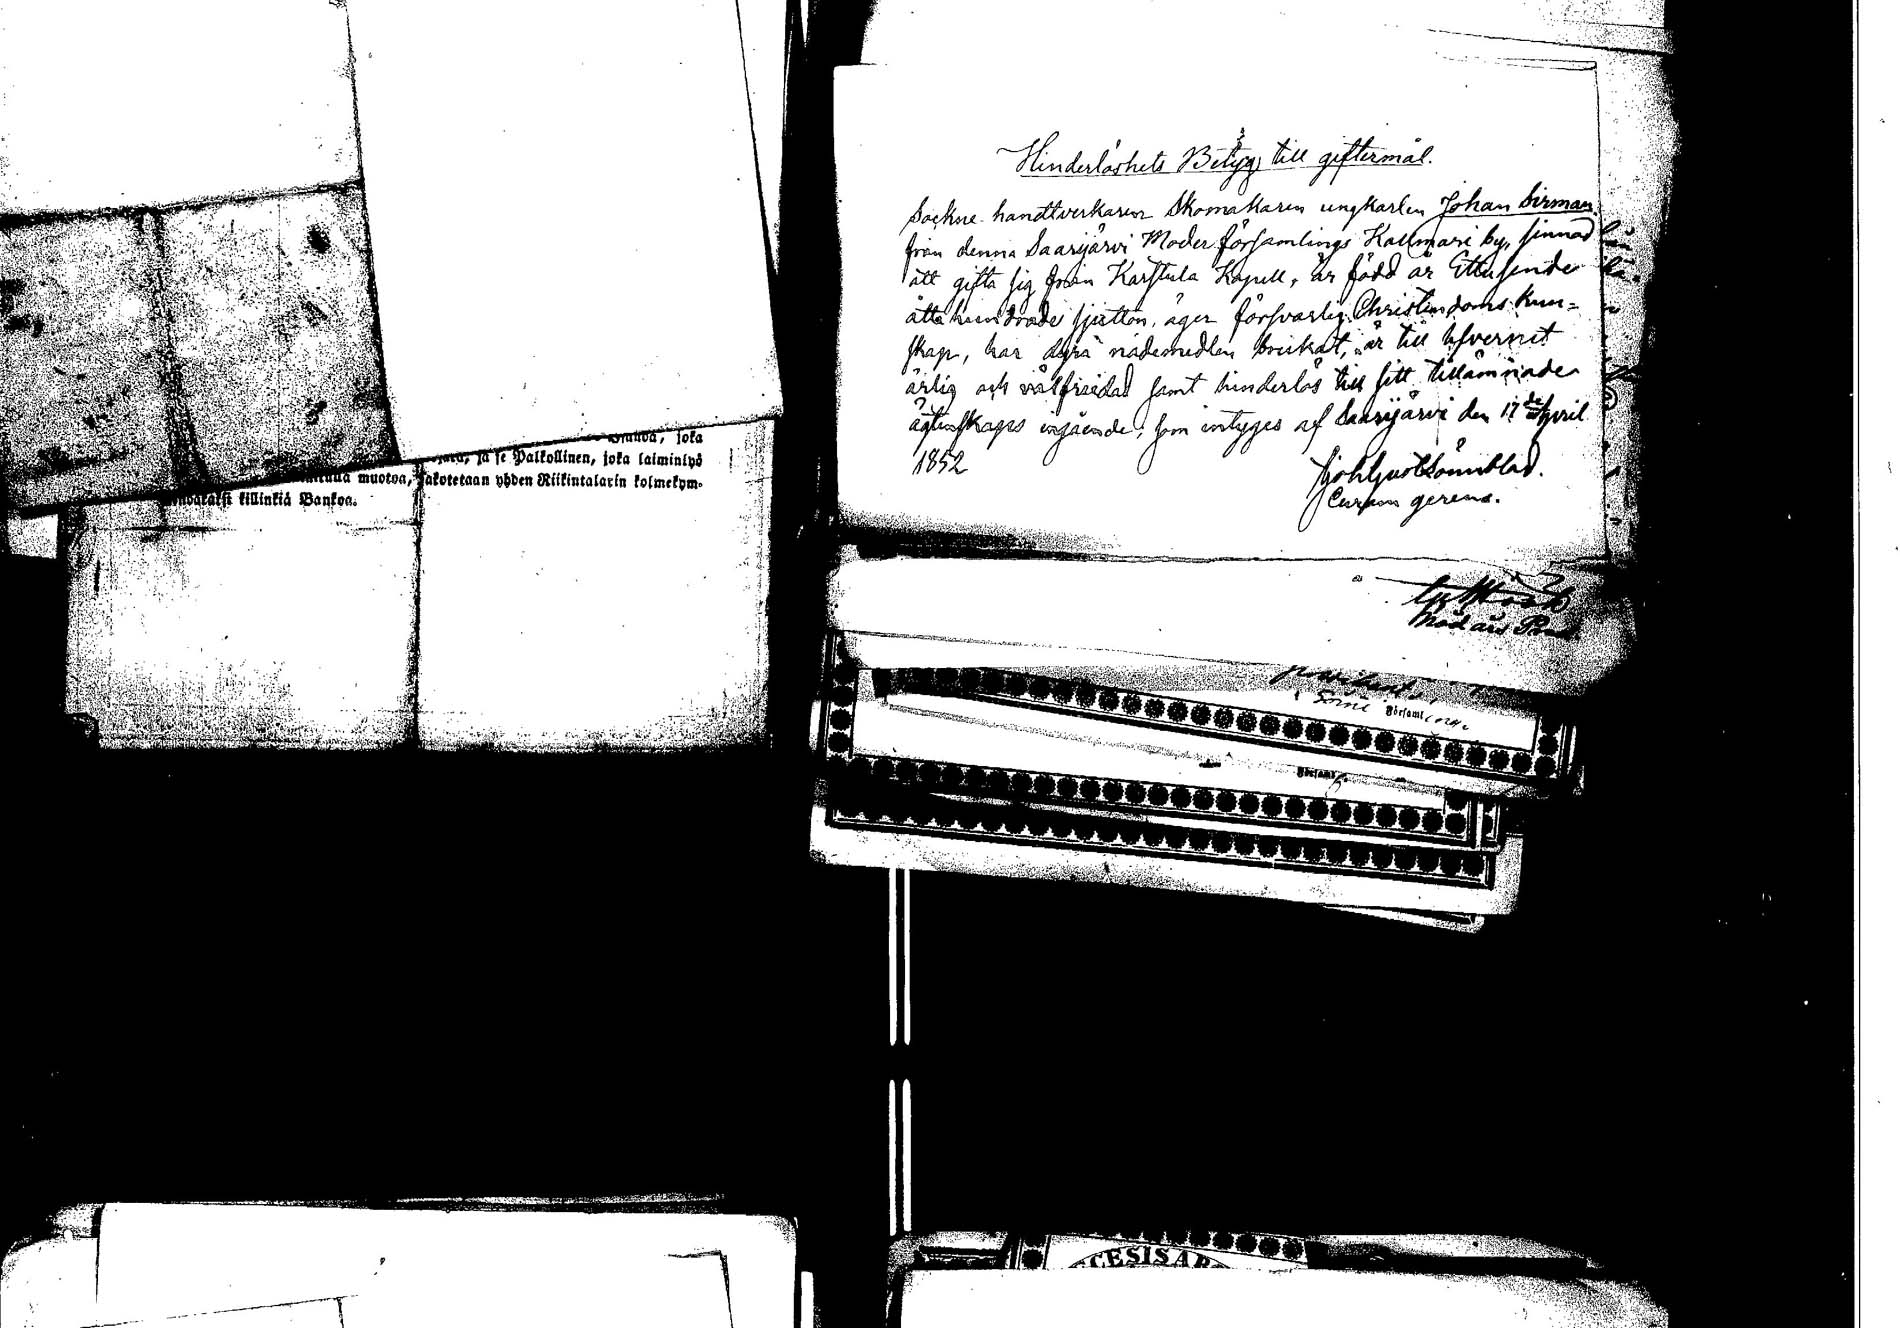 joka
ja se Palkollinen, joka laiminlyö
muotoa, sakotetaan yhden Riikintalarin kolmekym-
killinkiä Bankoa.
Hinderlöshets Betyg till giftermål.
Sockne handtverkaren Skomakaren ungkarlen Johan Sirman
från denna Saarijärvi Moder församlings Kallmari by, sinnad
att gifta sig från Karstula Kapell, är född år Ettusende
åttahundrade sjutton, äger försvarlig Christendoms kun=
skap, har dyra nådemedlen brukat, är till lefvernet
ärlig och välfrejdad samt hinderlös till sitt tillämnade
ägtenskaps ingående, som intyges af Saarijärvi den 17de April
1852
Curam gerens.
Församl
Församl
CESIS AB